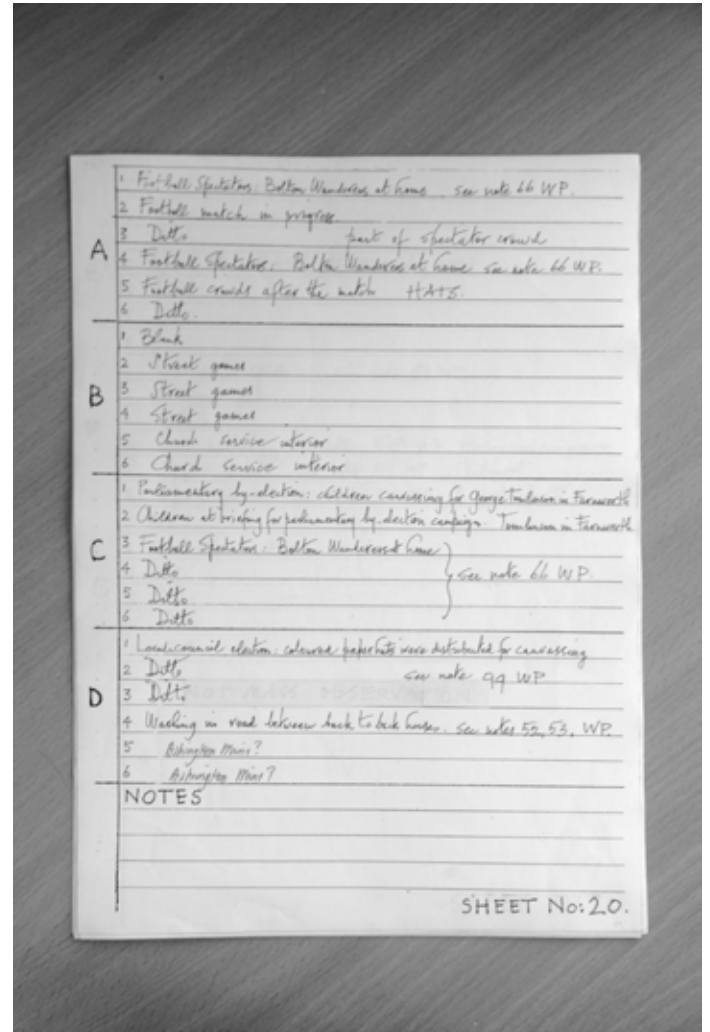 1 Football Spectators: Bolton Wanderers at home see note 66 WP.
2 Football match in progress.
3 Ditto part of spectator crowd
A
4 Football Spectators: Bolton Wanderers at home see note 66 WP.
5 Football crowds after the match HATS.
6 Ditto.
1 Blank
2 Street games
B
3 Street games
4 Street games
5 Church service interior
6 Church service interior
1 Parliamentary by-election: children canvassing for George Tomlinson in Farnworth
2 Children at briefing for parliamentary by-election campaign. Tomlinson in Farnworth
C
3 Football Spectators: Bolton Wanderers at home
4 Ditto see note 66 WP.
5 Ditto
6 Ditto
1 Local-council election: coloured paper hats were distributed for canvassing
2 Ditto see note 99 WP
D
3 Ditto
4 Washing in road between back to back houses. see notes 52, 53, WP.
5 Ashington Mins?
6 Ashington Mins?
NOTES
SHEET No: 20.